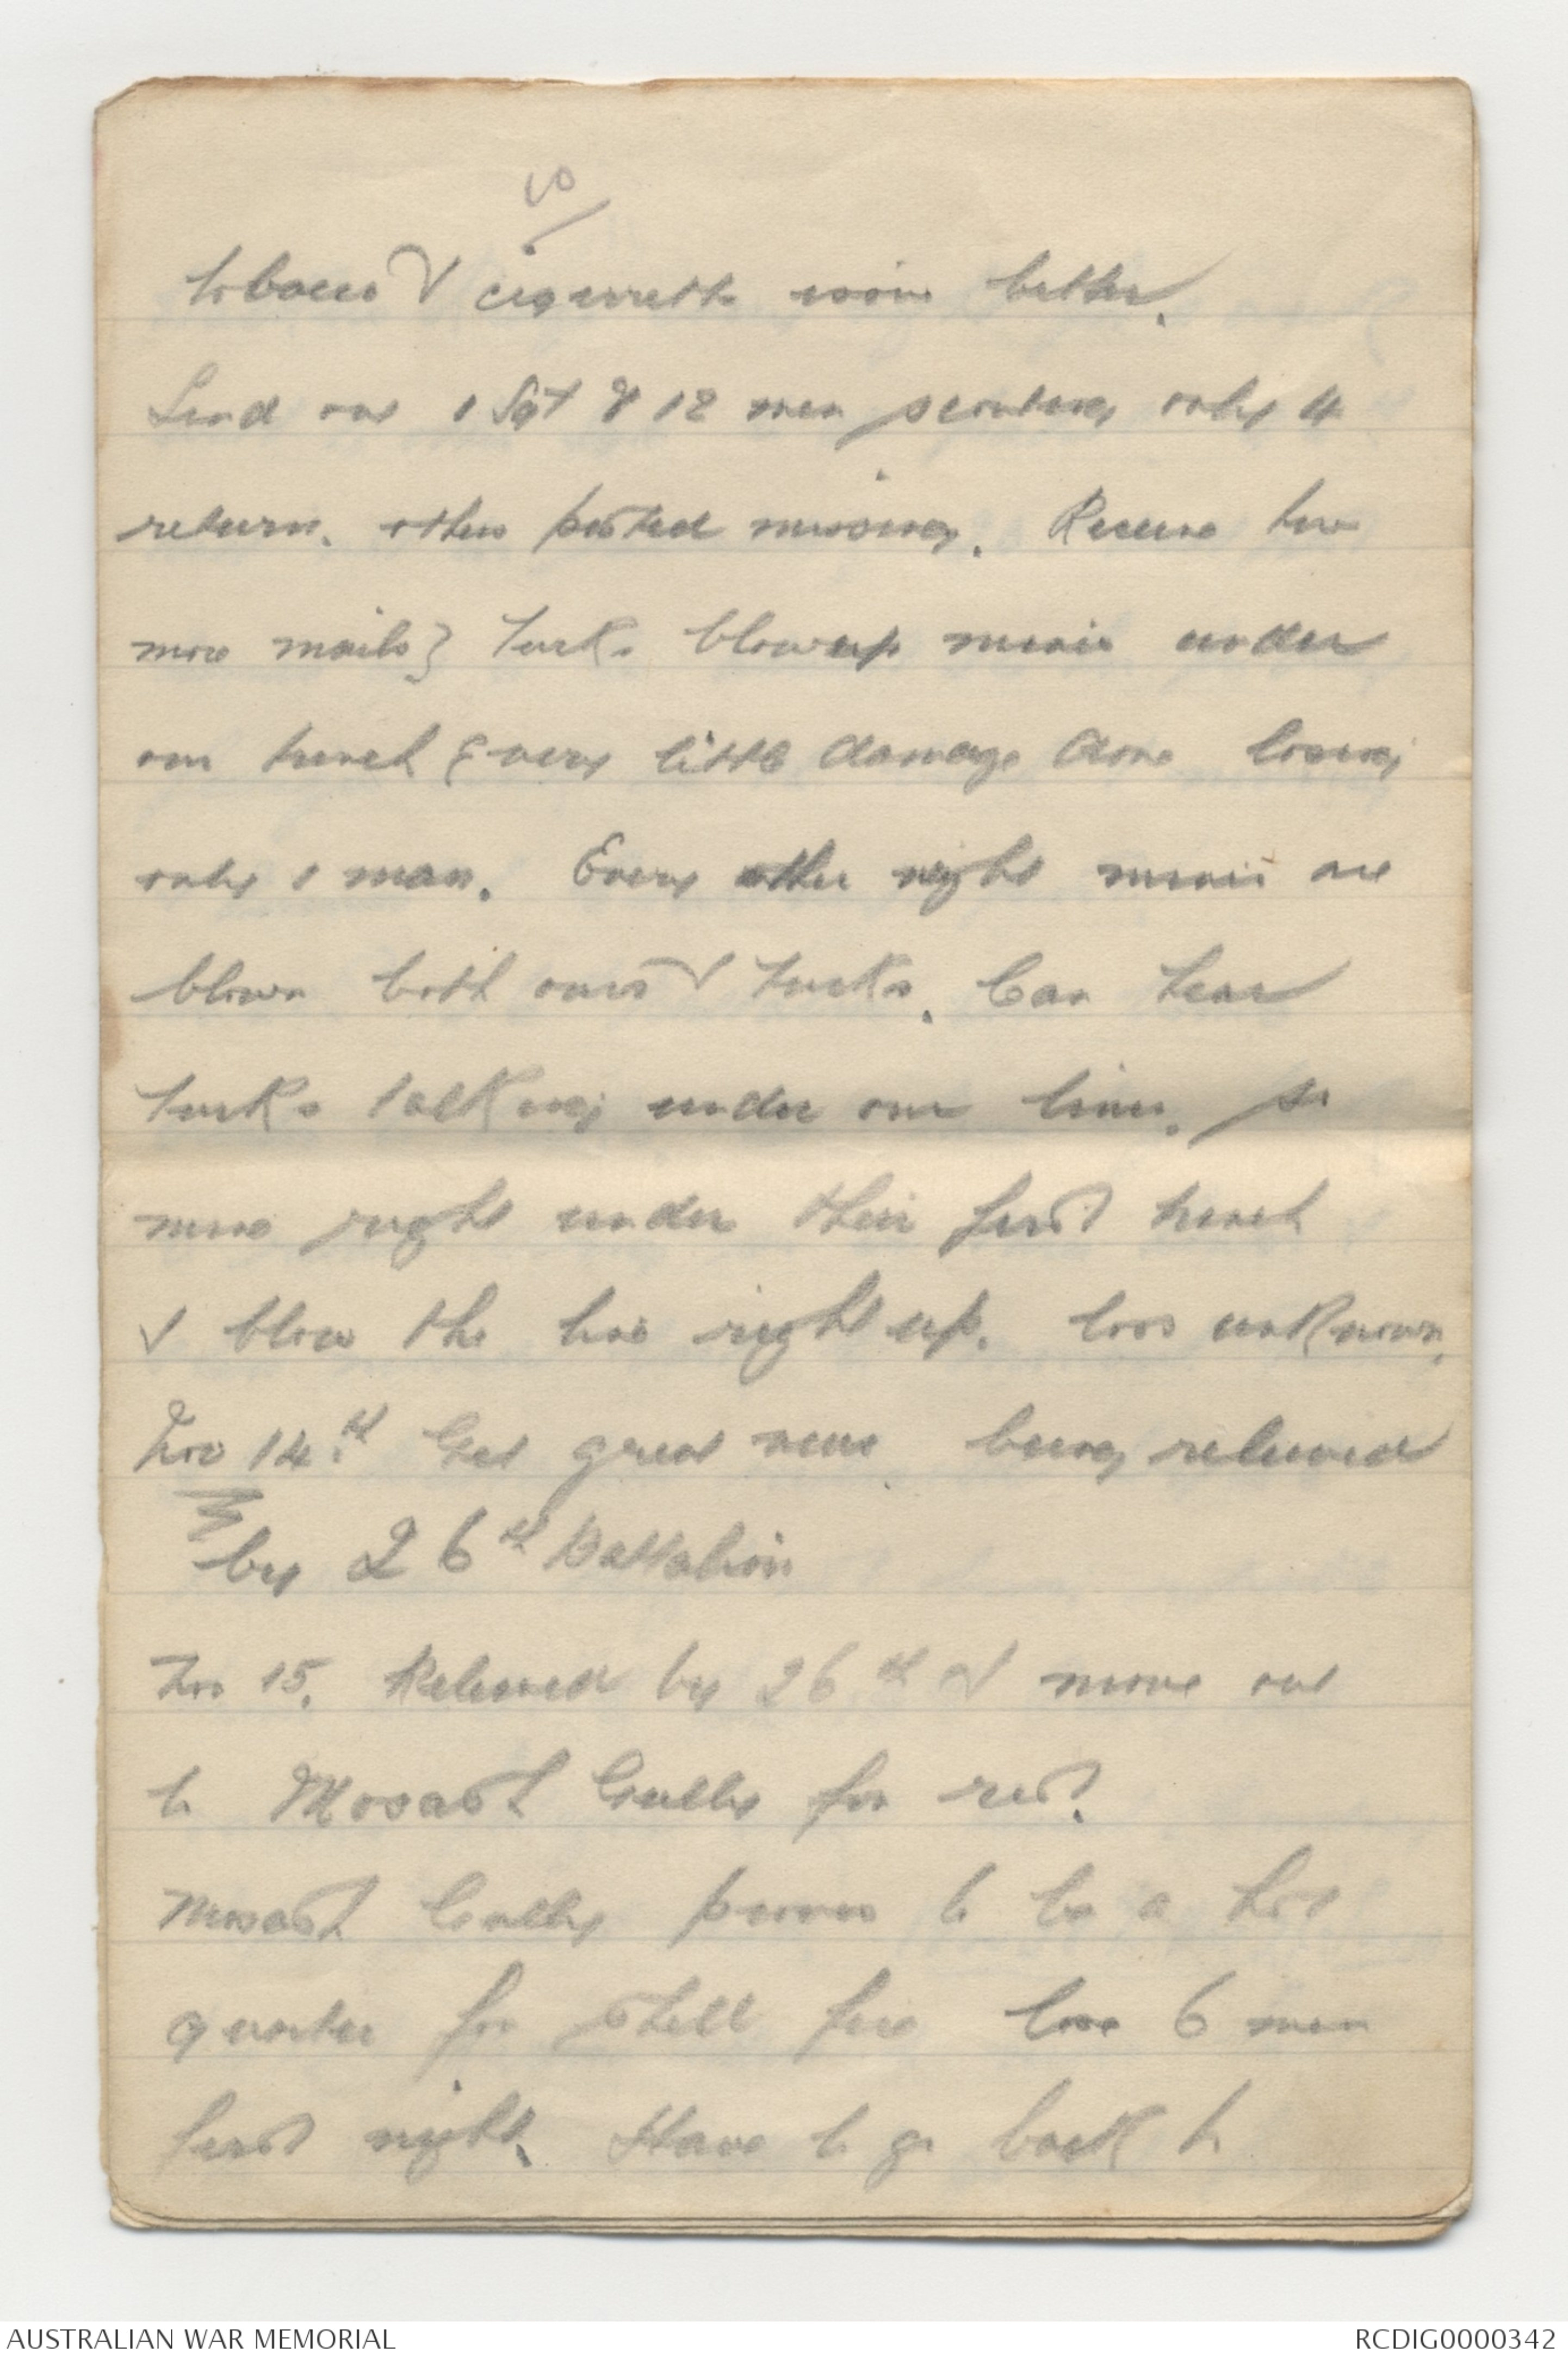 tobacco & cigarette even better.
Send out 1 Sgt & 12 men scouting only 4
return. others posted missing. Receive two
more mails} Turks blow up mine under
our trench & very little damage done losing
only 1 man. Every other night mines are
blown both ours & Turks. Can hear
Turks talking under our lines. So
mine right under their first trench
& blow the line right up. loss unknown.
Nov 14th Get great news being relieved
by 26th Battalion
Nov 15. Relieved by 26th & move out
to Mosast Gully for rest.
Mosast Gully proves to be a hot
quarter for shell fire lose 6 men
first night. Have to go back to
AUSTRALIAN WAR MEMORIAL
RCDIG0000342